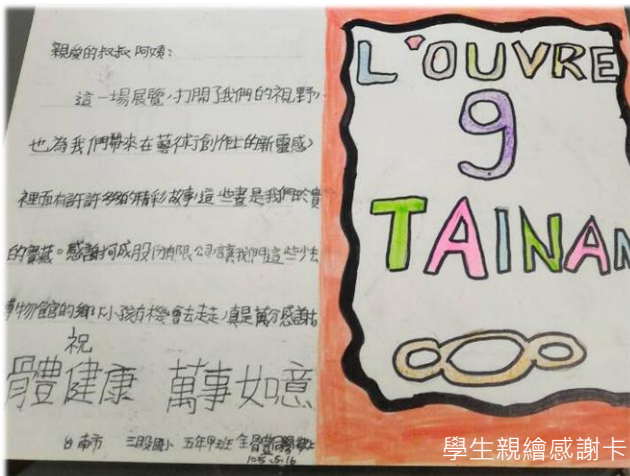 親愛的叔叔阿姨：
這一場展覽，打開了我們的視野，
也為我們帶來在藝術創作上的新靈感，
裡面有許許多多的精彩故事，這些畫是我們珍貴
的寶藏。感謝和成股份有限公司讓我們這些少去
博物館的鄉下小孩有機會去走走，真是萬分感謝
祝
體健康 萬事如意
台南市 國小 五年甲班 全 敬上
105.5.16
L'OUVRE
9
TAINAN
學生親繪感謝卡